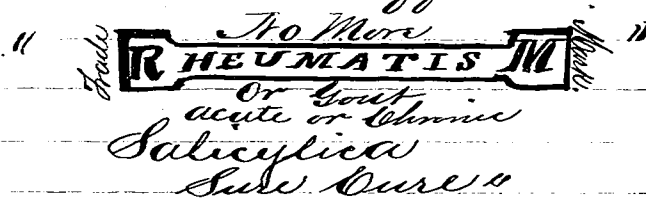 " No More "
Trade RHEUMATISM Mark.
Or Gout
acute or Chronic
Salicylica
Sure Cure"